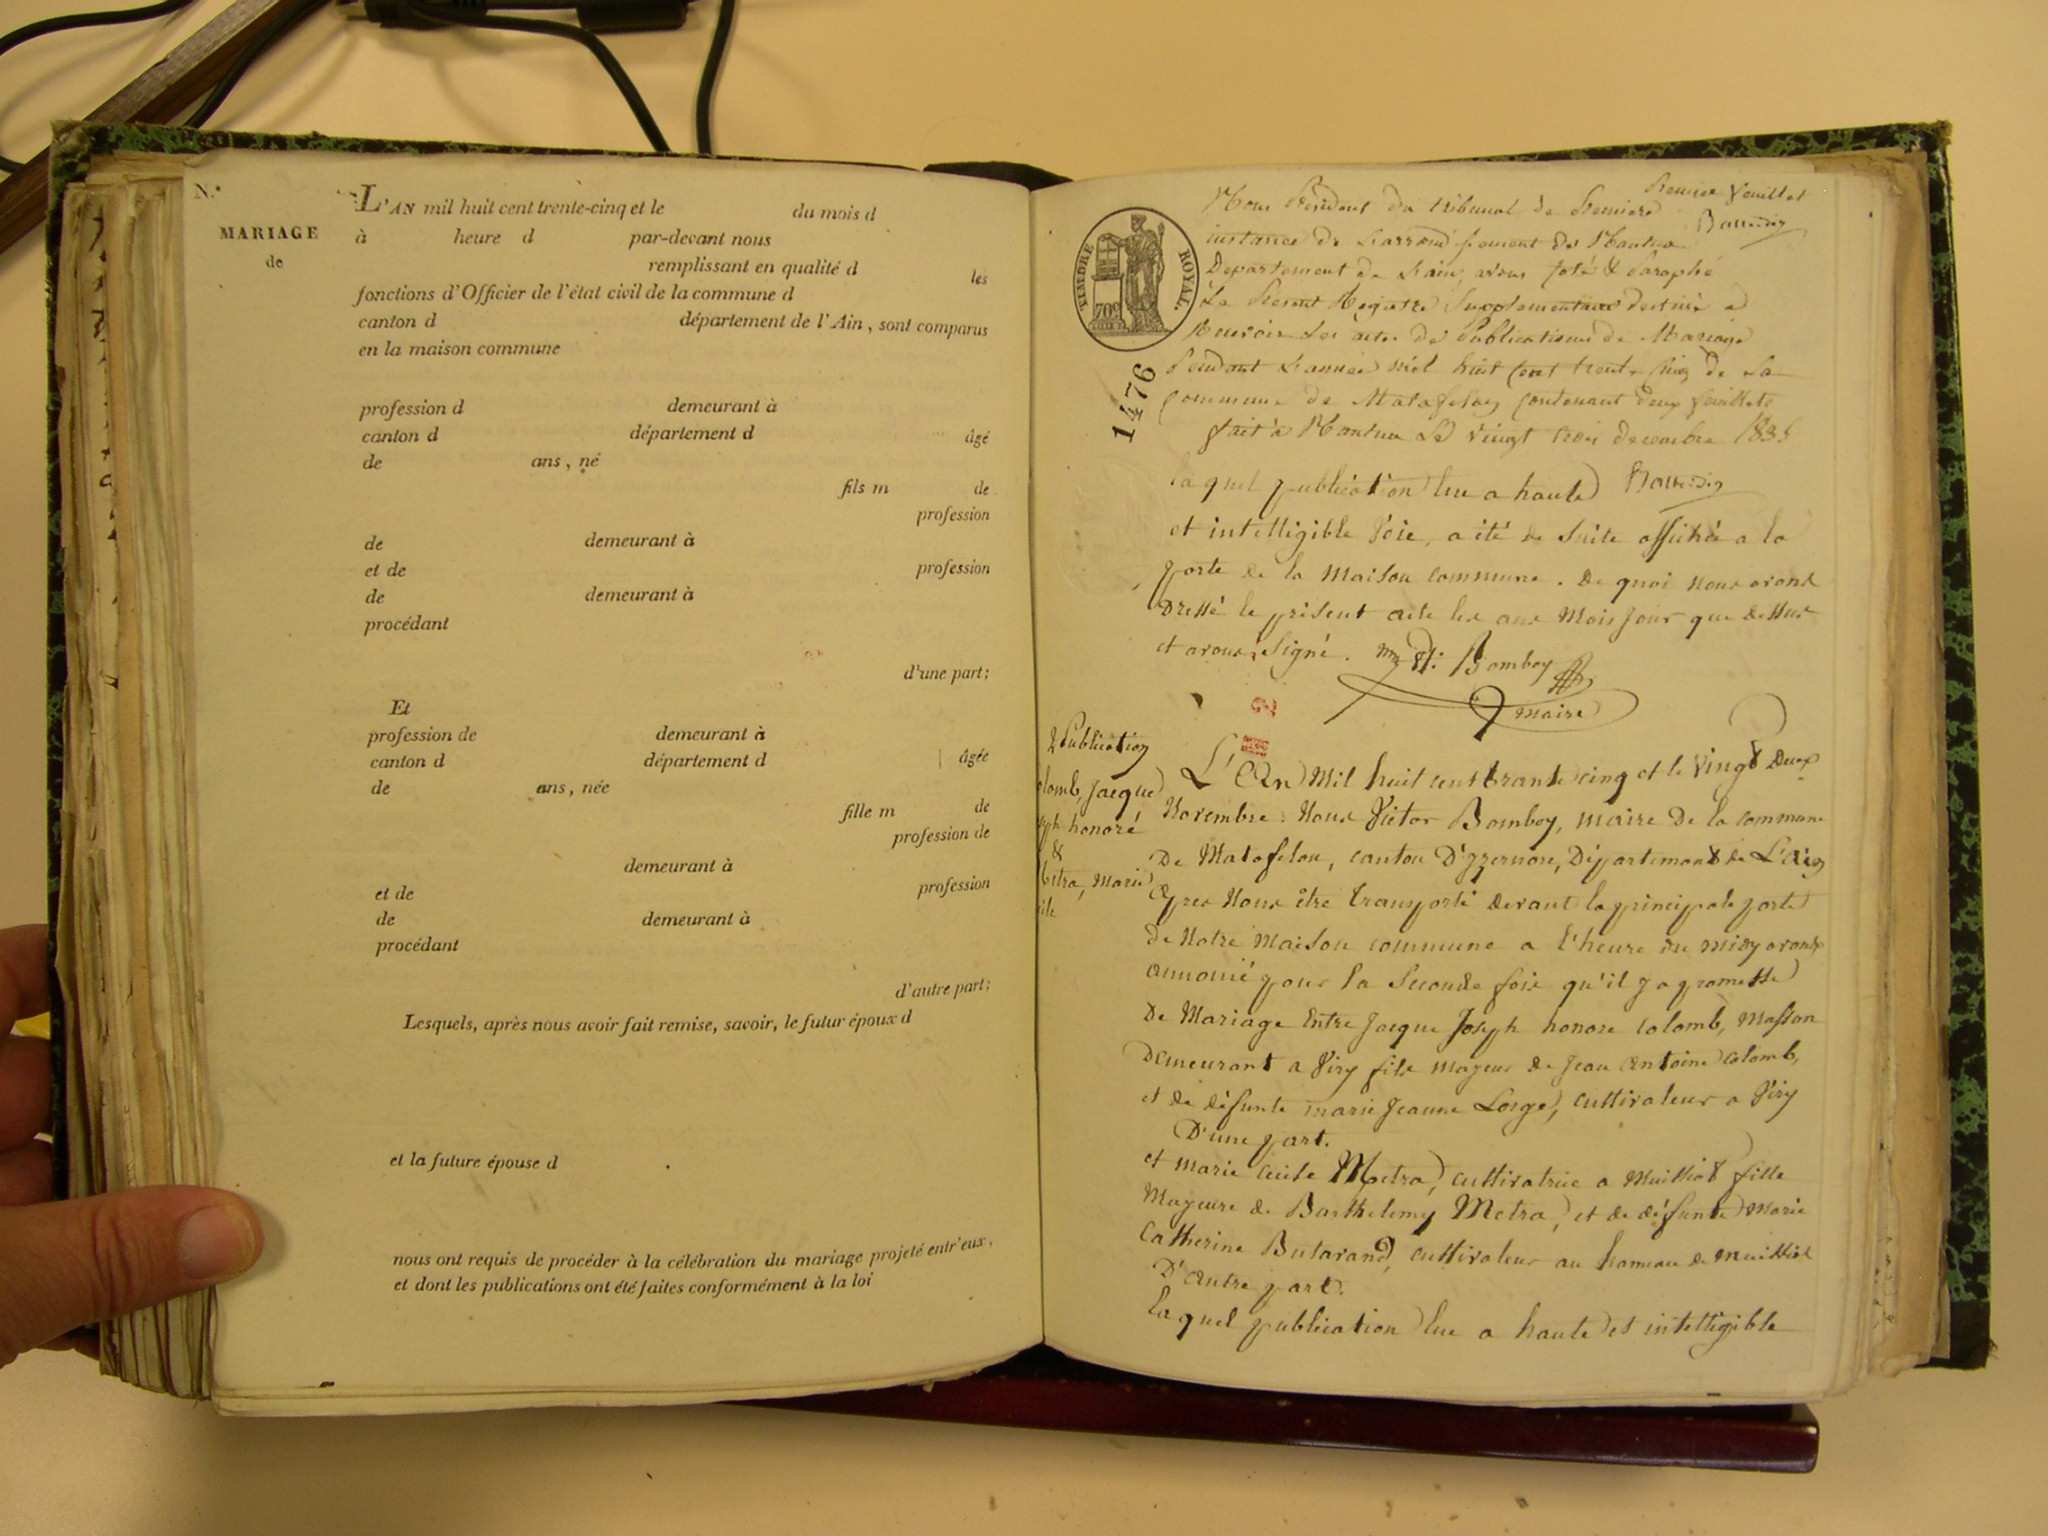 N.°
MARIAGE
de
L'AN mil huit cent trente-cinq et le du mois d
à heure d par-devant nous
remplissant en qualité d les
fonctions d'Officier de l'état civil de la commune d
canton d département de l'Ain, sont comparus
en la maison commune
profession d demeurant à
canton d département d âgé
de ans, né
fils m de
profession
de demeurant à
et de profession
de demeurant à
procédant
d'une part;
Et
profession de demeurant à
canton d département d âgée
de ans, née
fille m de
profession de
demeurant à
et de profession
de demeurant à
procédant
d'autre part;
Lesquels, après nous avoir fait remise, savoir, le futur époux d
et la future épouse d
nous ont requis de procéder à la célébration du mariage projeté entr'eux,
et dont les publications ont été faites conformément à la loi
Premier feuillet
TIMBRE ROYAL
70c
1476
Nous Président du tribunal de Premiere
instance de L'arrondissement de Nantua
Departement de L'ain, avons Coté & Paraphé
Le Present Registre Supplementaire destiné a
Recevoir Les actes de Publications de Mariage
Pendant L'année mil huit Cent trente Cinq de La
Commune de Matafelon Contenant deux feuillets
fait à Nantua Le vingt trois decembre 1835
laquel publication lue a haute
et intelligible Voie, a été de Suite affichée a la
porte de la Maison Commune. De quoi Nous avons
Dressé le présent acte les ans Mois Jour que dessus
et avons Signé. Bomboy
maire
2 Publication
olomb, Jacque
eph honoré
&
Metra, Marie
cile
L'An Mil huit cent trante cinq et le Vingt Deux
Novembre. Nous Victor Bomboy, maire De la commune
De Matafelon, canton D'Izernore, Département de L'Ain
Apres Nous être transporté devant la principale porte
De Notre Maison commune a l'heure du midy avons
annoncé pour la Seconde fois qu'il y a promesse
De Mariage Entre Jacque Joseph honoré Colomb, Masson
Demeurant a Viry fils mageur de Jean Antoine Colomb,
et de défunte marie Jeanne Lorge, cultivateur a Viry
D'une part.
et marie Cécile Metra, cultivatrice a Muilliat fille
Mageure de Barthelemy Metra, et de défunte Marie
Catherine Butavand, cultivateur au hameau de Muilliat
D'Autre part.
laquel publication lue a haute et intelligible